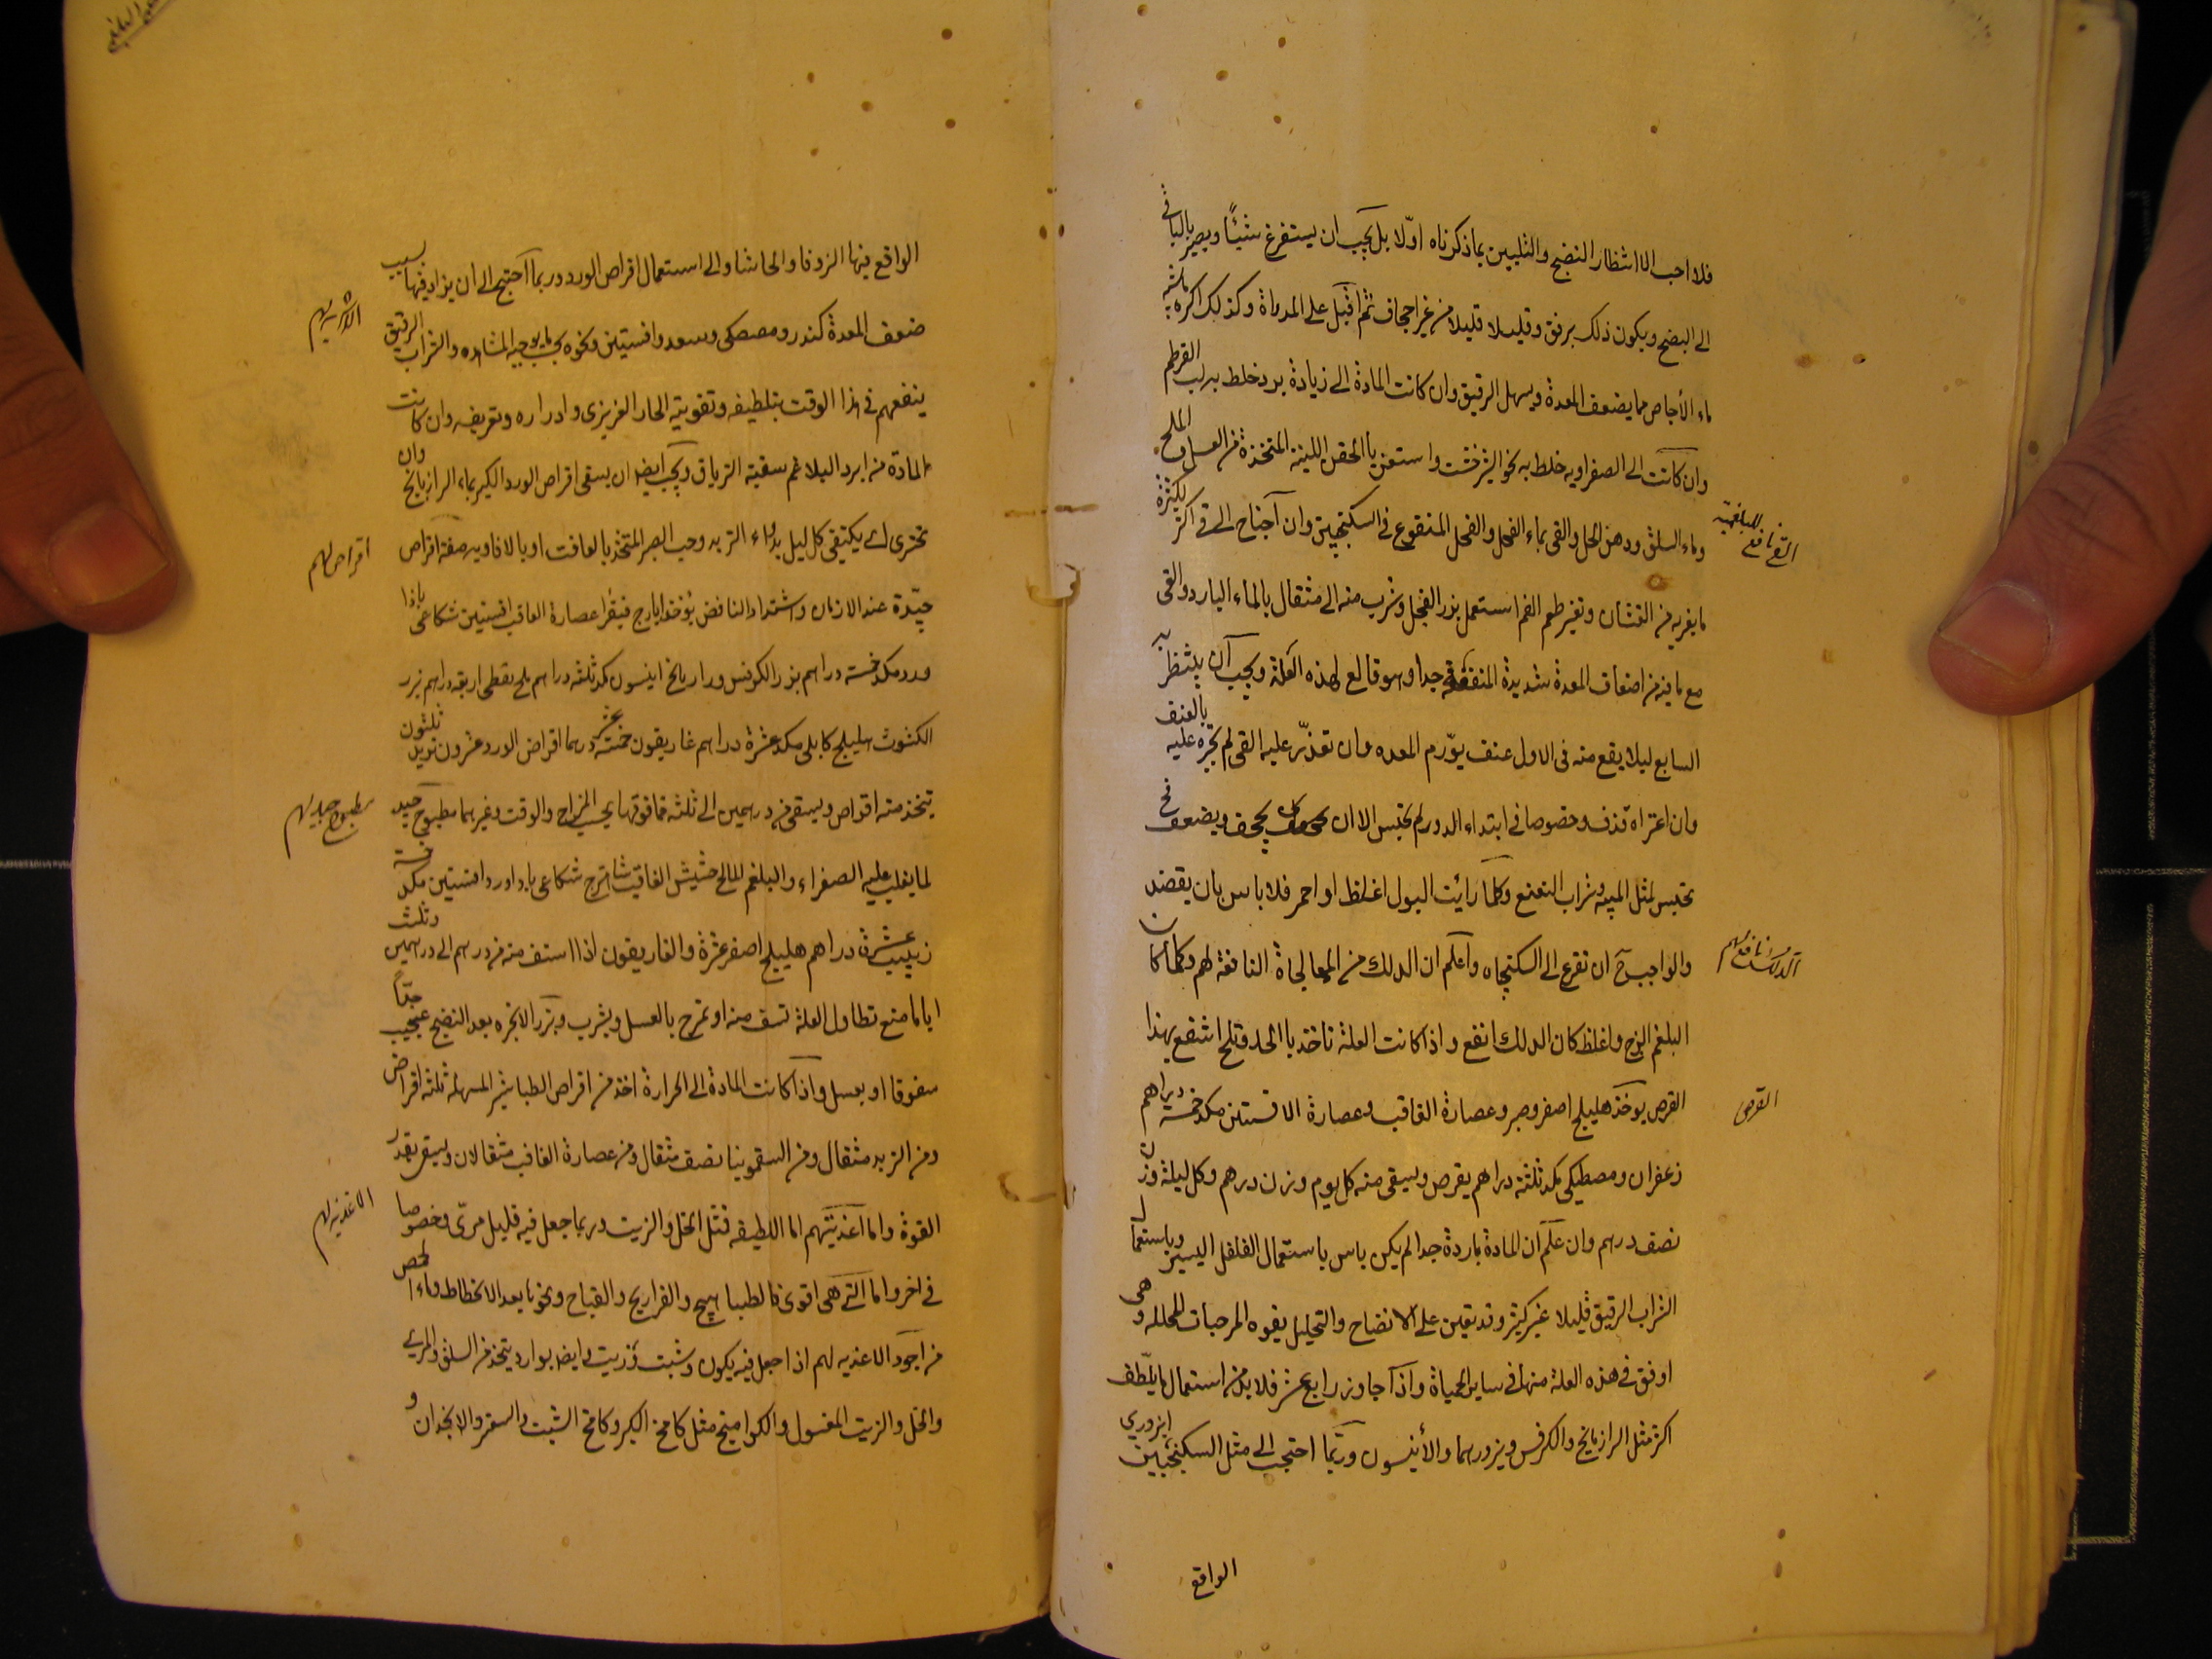 فلا احب الا انتظار النضج والتليين بما ذكرناه اوّلا بل يجب ان يستفرغ شيئًا ويصير بالباقى
الى النضج ويكون ذلك برفق وقليلا قليلا من غير اجحاف ثم اقبل على المداواة وكذلك اكره ماسته
ماء الأجاص مما يضعف المعدة ويسهل الرقيق وان كانت المادة الى زيادة برد خلط به لب القرطم
وان كانت الى الصفراويه خلط به نحو الشيرخشت واستعن بالحقن اللينة المتخذة من العسل والملح
وماء السلق ودهن الخل والقى بماء الفجل والفجل المنقوع فى السكنجبين وان احتاج الى قى اكثر لكثرة
القى نافع للبلغمية
ما يغريه من الغثيان وتغير طعم الفم استعمل بزر الفجل وشرب منه الى مثقال بالماء البارد والقى
مع ما فيه من اضعاف المعدة شديدة المنفعة جدا وهو قالع لهذه العلة ويجب ان ينتظر به
السابع ليلا يقع منه فى الاول عنف يورّم المعده وان تعذّر عليه القى لم تجره عليه بالعنف
وان اعتراه قذف وخصوصا فى ابتداء الدور لم تحتبس الا ان يجحف ويضعف فح
تحتبس لمثل الميبه وشراب النعنع وكلما رائت البول اغلظ او احمر فلا باس بان يفصد
والواجب ح ان تفزع الى السكنجباه واعلم ان الدلك من المعالجاة النافعة لهم وكلما كان
الدلك نافع لهم
البلغم الزج واغلظ كان الدلك انفع واذا كانت العلة تاخذ بالحد وتلح انتفع بهذا
القرص يوخذ هليلج اصفر وصبر وعصارة الغافت وعصارة الافسنتين مكد خمسة دراهم
القرص
زعفران ومصطيكى مكد ثلثة دراهم يقرص ويسقى منه كل يوم وزن درهم وكل ليلة وزن
نصف درهم وان علم ان المادة باردة جدا لم يكن باس باستعمال الفلفل اليسير وباستعمال
الشراب الرقيق قليلا غير كثير وقد يعين على الانضاج والتحليل بقوه المرخيات المحلله وهى
اوفق فى هذه العلة منها فى ساير الحمياة واذا جاوز رابع عشر فلا بد من استعمال ما يلّطف
اكثر مثل الرازيانج والكرفس وبزورهما والأنيسون وربّما احتجب الى مثل السكنجبين البزورى
الواقع
الواقع فيها الزوفا والحاشا والى استعمال اقراص الورد وربما احتيج الى ان يزاد فيها بسبب
ضعف المعدة كندر ومصطكى وسعد وافسنتين ونحوه بحسب ما يوجبه المشاهده والشراب الرقيق
الاشربه لهم
ينفعهم فى هذا الوقت بتلطيفه وتقويته الحار الغريزى وادراره وتعريقه وان كانت
المادة من ابرد البلاغم سقيه الترياق ويجب ايضا ان يسقى اقراص الورد الكبير بماء الرازيانج وان
تحترى ان يكتفى كل ليل بدواء التربد وحب الصبر المتخذ بالغافت او بالافاويه صفة اقراص
اقراص لهم
جيّدة عند الازمان واشتداد النافض يؤخذ ايارج فيقرا عصارة الغافت افسنتين شكاعى باذا
ورد مكد خمسة دراهم بزر الكرفس ورازيانج انيسون مكد ثلثة دراهم ملح نفطى اربعه دراهم بزر
الكشوث هليلج كابلى مكد عشرة دراهم غاريقون خمسة عشر درهما اقراص الورد عشرون تربد ثلثون
يتخذ منه اقراص ويسقى من درهمين الى ثلثه فما فوقها بحسب المزاج والوقت وغيرهما مطبوخ جيد
مطبوخ جيد لهم
لما يغلب عليه الصفراء والبلغم المالح حشيش الغافت شاهترج شكاعى باداورد افسنتين مكد خمسة
زبيب عشرة دراهم هليلج اصفر عشرة والغاريقون اذا استف منه من درهم الى درهمين وثلث
اياما منع تطاول العلة تسف منه او تمزج بالعسل ويشرب وبزر الانجره بعد النضج عجيب جدّاً
سفوفا او بعسل واذا كانت المادة الى الحرارة اخذ من اقراص الطباشير المسهلة ثلثه اقراص
ومن التربد مثقال ومن السقمونيا نصف مثقال ومن عصارة الغافت مثقالان ويسقى بقدر
القوة واما اغذيتهم اما اللطيفه فمثل الخل والزيت وربما جعل فيه قليل مرّى وخصوصا
الاغذيه لهم
فى اخره واما التى هى اقوى فالطباهيج والفراريج والقباج ونحوها بعد الانحطاط وماء الحمص
من اجود الاغذيه لهم اذا جعل فيه يكون وشبت وزيت وايضا بوارد يتخذ من السلق والمرى
والخل والزيت المغسول والكواميخ مثل كامخ الكبر وكامخ الشبت والسعتر والانجدان و